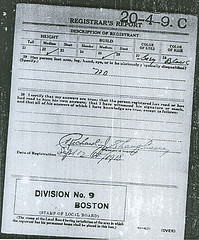 20-4-9. C
REGISTRAR'S REPORT
DESCRIPTION OF REGISTRANT
HEIGHT
BUILD
COLOR OF EYES
COLOR OF HAIR
Tall
Medium
Short
Slender
Medium
Stout
29 Has person lost arm, leg, hand, eye, or is he obviously physically disqualified?
(Specify.)
no
30 I certify that my answers are true; that the person registered has read or has had read to him his own answers; that I have witnessed his signature or mark, and that all of his answers of which I have knowledge are true, except as follows:
Date of Registration
DIVISION No. 9
BOSTON
(STAMP OF LOCAL BOARD)
(The stamp of the Local Board having jurisdiction of the area in which the registrant has his permanent home shall be placed in this box.)